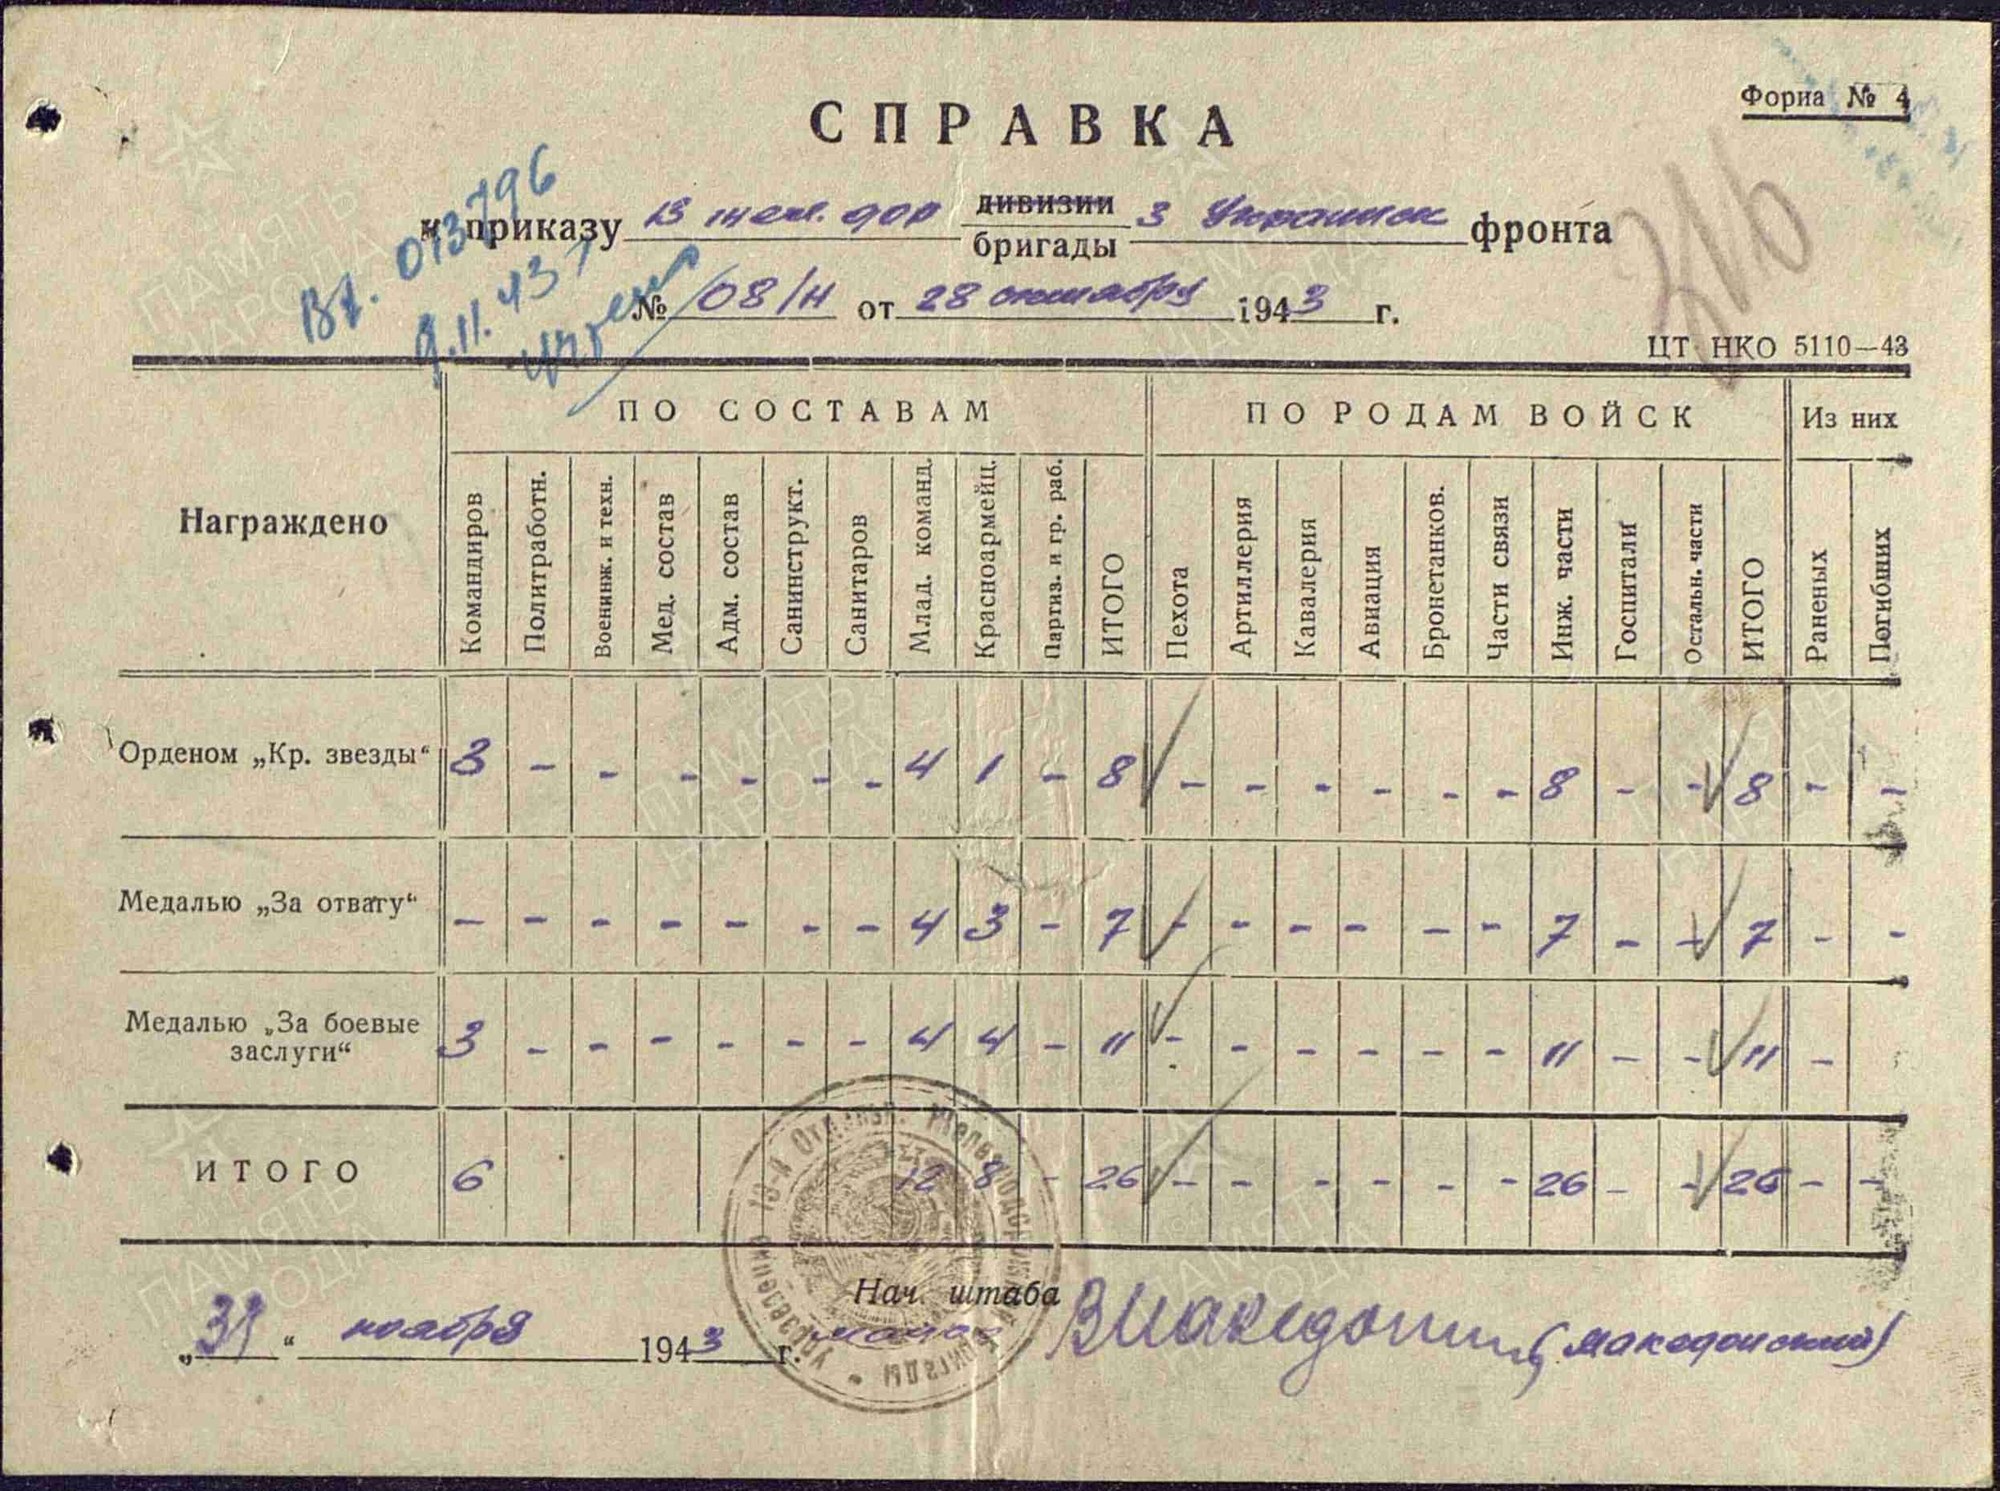 Форма № 4
СПРАВКА
Вх. 013796
9.11.43 г
к приказу 13 жел. дор дивизии 3 Украинск фронта
бригады
№ 08/н от 28 октября 1943 г.
316
ЦТ НКО 5110—43
Награждено ПО СОСТАВАМ ПО РОДАМ ВОЙСК Из них
Командиров Политработн. Военинж. и техн. Мед. состав Адм. состав Санинструкт. Санитаров Млад. команд. Красноармейц. Партиз. и гр. раб. ИТОГО Пехота Артиллерия Кавалерия Авиация Бронетанков. Части связи Инж. части Госпитали Остальн. части ИТОГО Раненых Погибших
Орденом „Кр. звезды“ 3 - - - - - - 4 1 - 8 - - - - - - 8 - - 8 - -
Медалью „За отвагу“ - - - - - - - 4 3 - 7 - - - - - - 7 - - 7 - -
Медалью „За боевые заслуги“ 3 - - - - - - 4 4 - 11 - - - - - - 11 - - 11 -
ИТОГО 6 12 8 - 26 - - - - - - 26 - - 26 - -
Управление 13-й Отдельн. Железнодорожной бригады
Нач. штаба
„31“ ноября 1943 г. майор ВМакедонский (македонский)
ПАМЯТЬ НАРОДА